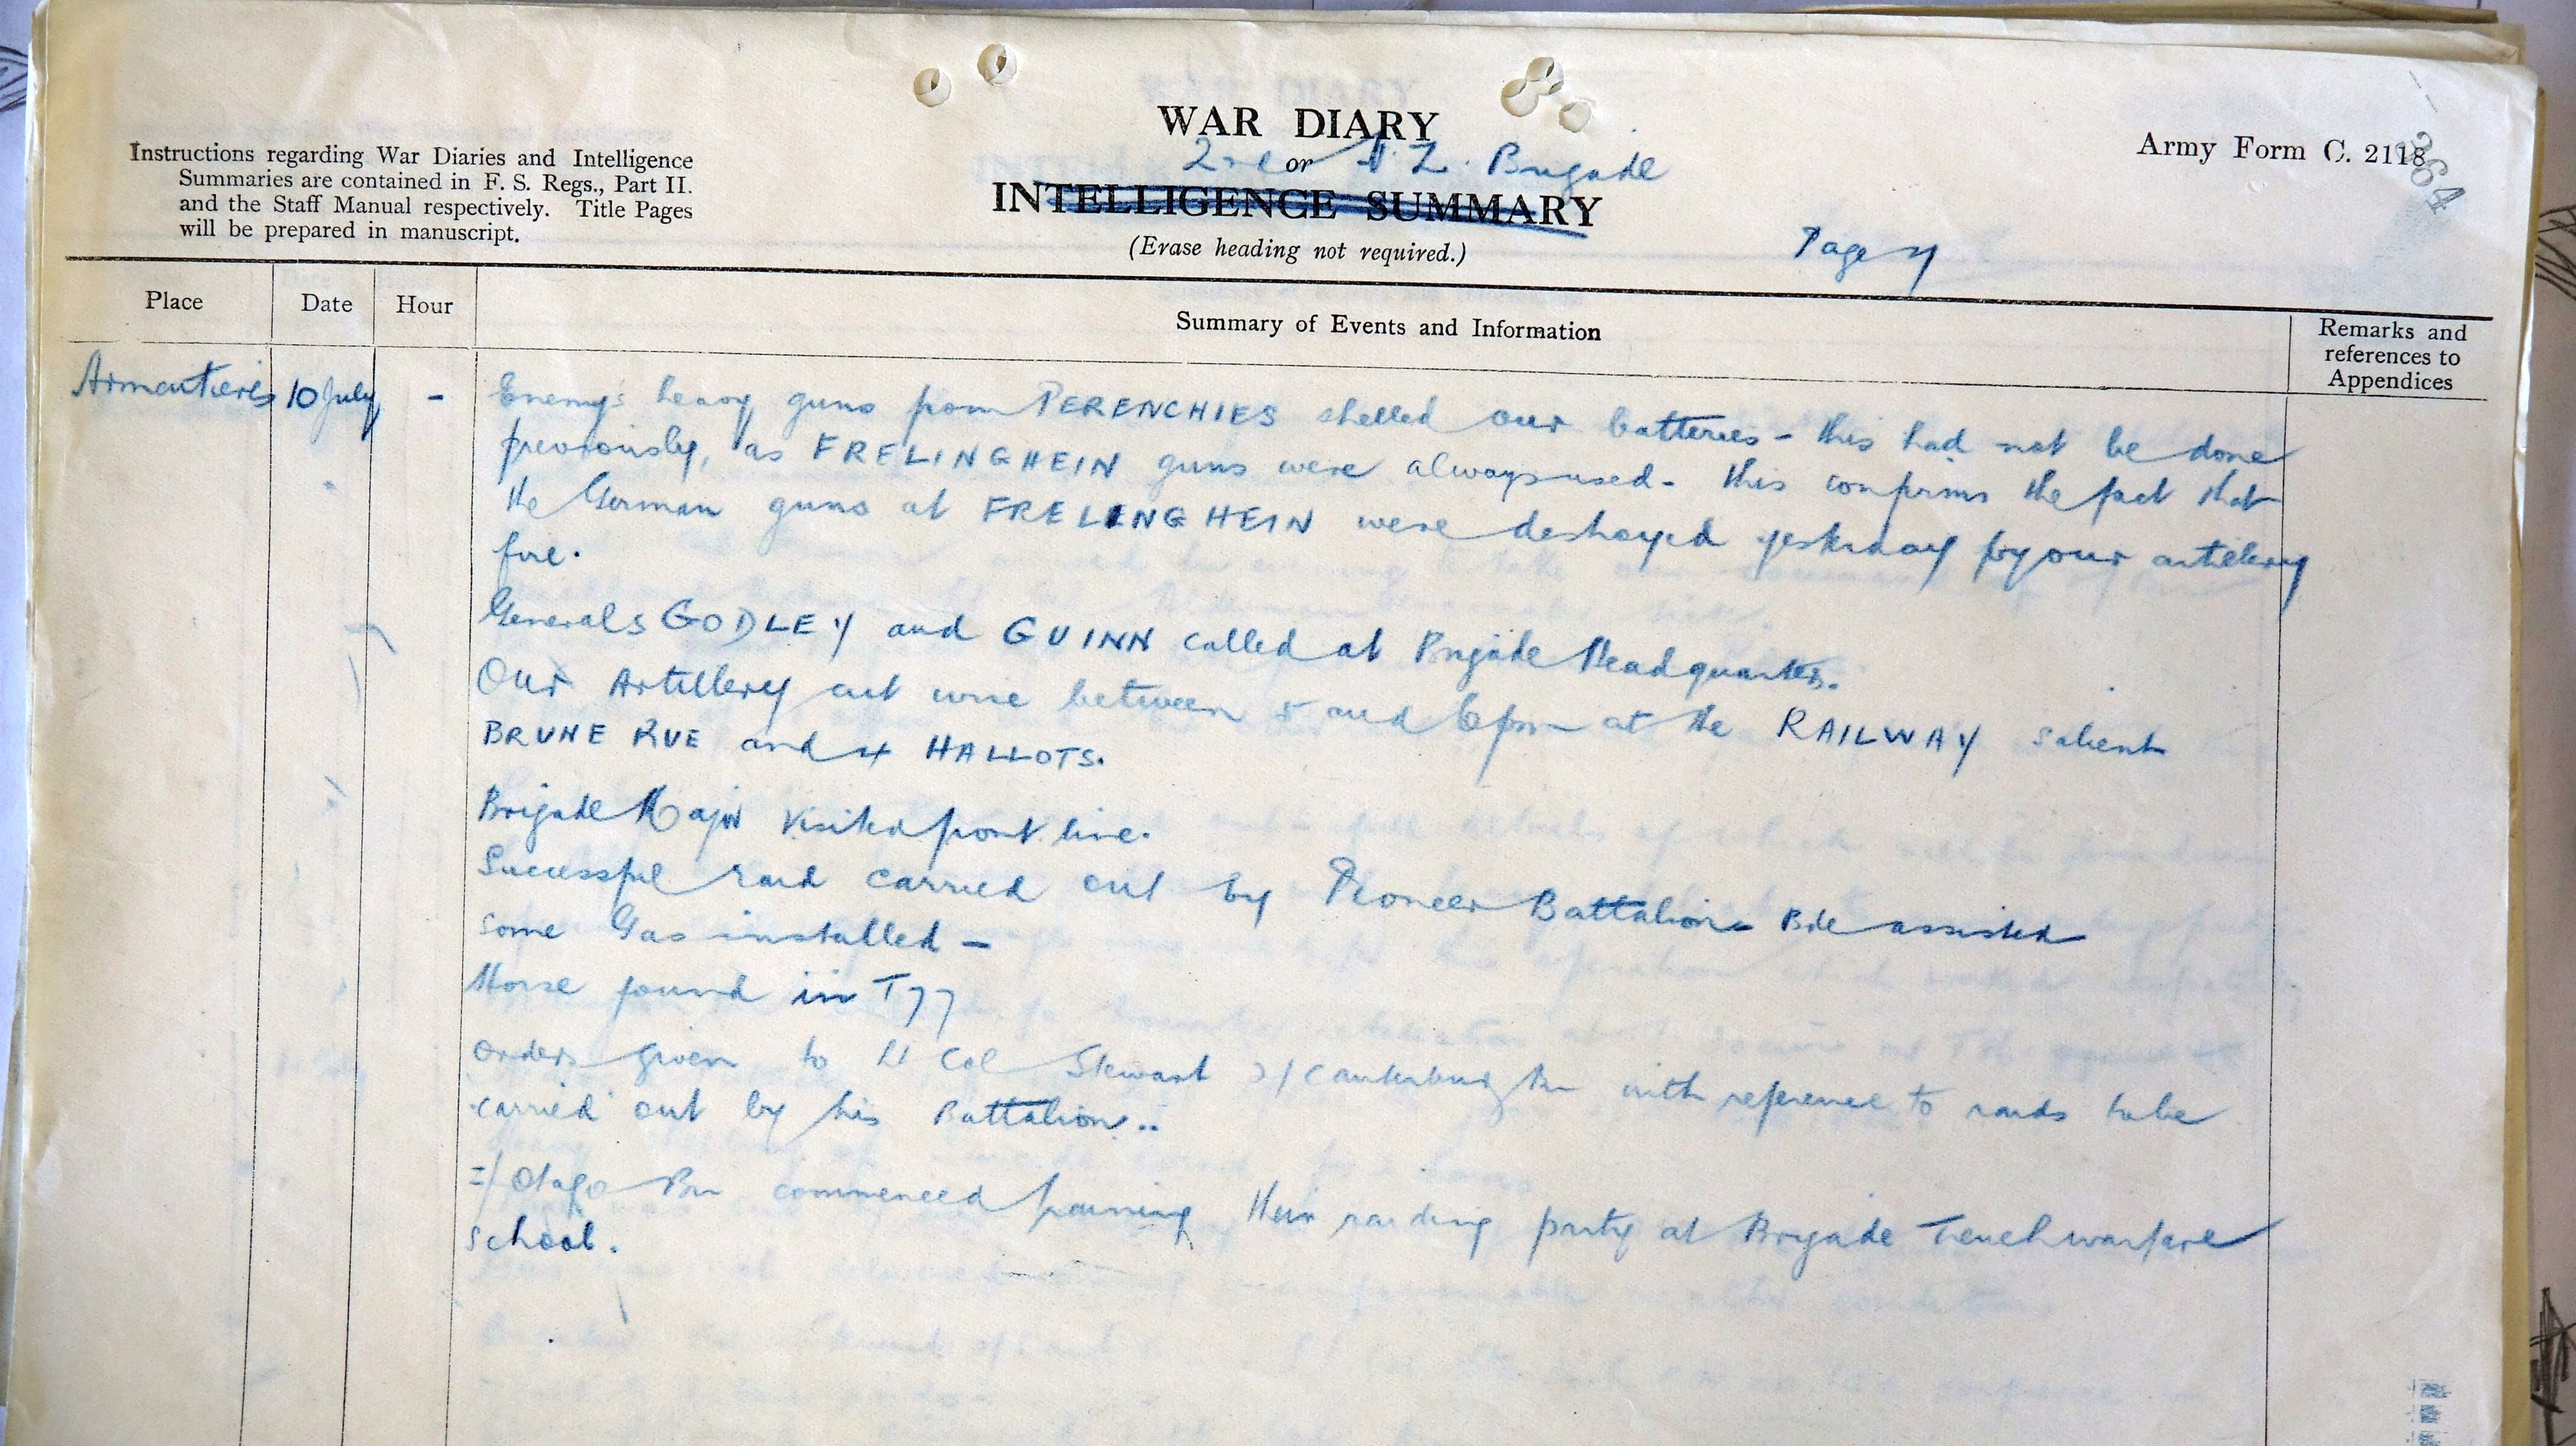 WAR DIARY
2nd or N.Z. Brigade
INTELLIGENCE SUMMARY
(Erase heading not required.)
Instructions regarding War Diaries and Intelligence
Summaries are contained in F. S. Regs., Part II.
and the Staff Manual respectively. Title Pages
will be prepared in manuscript.
Army Form C. 2118
364
Page
Place
Date
Hour
Summary of Events and Information
Remarks and
references to
Appendices
Armentieres 10 July - Enemy's heavy guns from PERENCHIES shelled our batteries - this had not be done
previously, as FRELINGHEIN guns were always used - this confirms the fact that
the German guns at FRELINGHEIN were destroyed yesterday by our artillery
fire.
Generals GODLEY and GUINN called at Brigade Headquarters.
Our Artillery cut wire between 5 and 6pm at the RAILWAY salient
BRUNE RUE and 4 HALLOTS.
Brigade Major visited front line.
Successful raid carried out by Pioneer Battalion - Bde assisted
some Gas installed -
Horse found in T77
Orders given to Lt Col Stewart 2/Canterbury Bn with reference to raids to be
carried out by his Battalion..
Otago Bn commenced training their raiding party at Brigade Trench warfare
school.